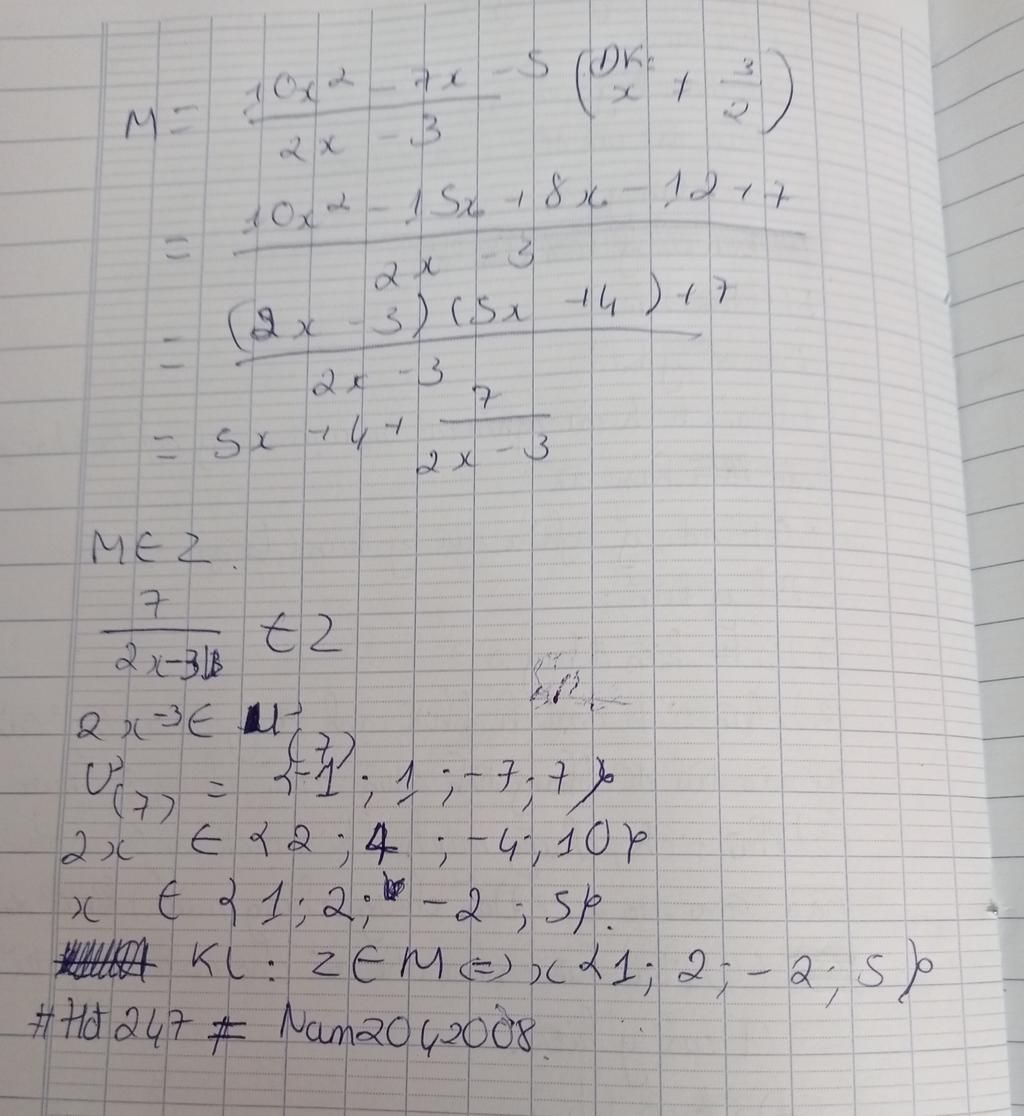 M = \frac{10x^2 - 7x - 5}{2x - 3} (ĐK: x ≠ \frac{3}{2})
= \frac{10x^2 - 15x + 8x - 12 + 7}{2x - 3}
= \frac{(2x - 3)(5x + 4) + 7}{2x - 3}
= 5x + 4 + \frac{7}{2x - 3}
M ∈ Z.
\frac{7}{2x - 3} ∈ Z
2x - 3 ∈ Ư(7)
Ư(7) = {-1; 1; -7; 7}
2x ∈ {2; 4; -4; 10}
x ∈ {1; 2; -2; 5}.
KL: Z ∈ M <=> x {1; 2; -2; 5}
#Hđ247 # Nam2042008.